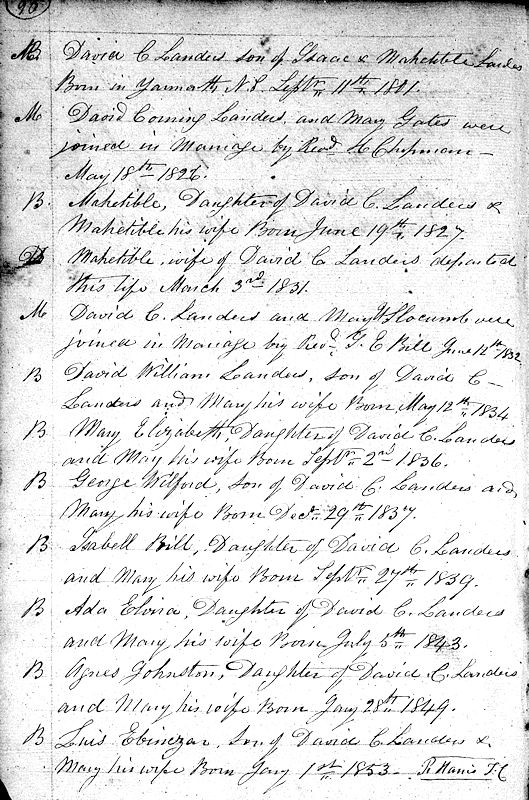 90
B. David C Landers son of Isaac & Mahetible Landers
Born in Yarmouth N.S. Septr 11th 1801.
M David Corning Landers, and Mary Gates were
joined in Mariage by Revd. H Chipman—
May 18th 1826.
B. Mahetible, Daughter of David C. Landers &
Mahetible his wife Born June 19th 1827.
D Mahetible, wife of David C. Landers departed
this life March 3rd 1831.
M David C. Landers and Mary Slocumb were
joined in Mariage by Revd. J. E Bill June 12th 1832
B David William Landers, son of David C—
Landers and Mary his wife Born May 12th 1834
B Mary Elizabeth, Daughter of David C. Landers
and Mary his wife Born Septr 2nd 1836.
B George Wilford, Son of David C. Landers and
Mary his wife Born Decr 29th 1837.
B Isabell Bill, Daughter of David C. Landers
and Mary his wife Born Septr 27th 1839.
B Ada Elvira, Daughter of David C. Landers
and Mary his wife Born July 5th 1843.
B Agnes Johnston, Daughter of David C. Landers
and Mary his wife Born Jany 28th 1849.
B Luis Ebinezar, Son of David C Landers &
Mary his wife Born Jany 1st 1853— R Harris T.C